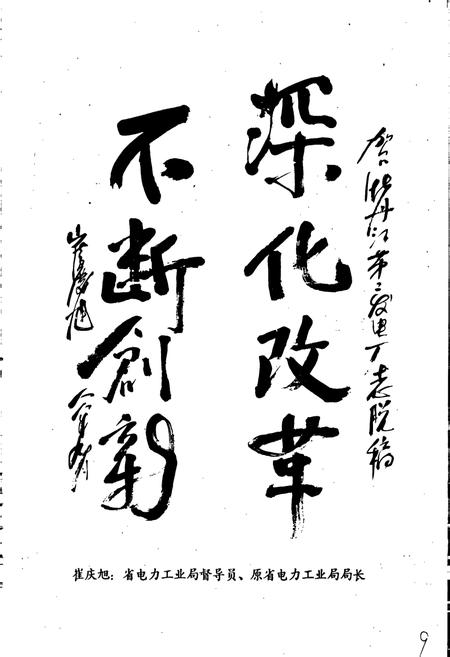 贺牡丹江第二发电厂志脱稿
深化改革
不断創新
崔慶旭
崔庆旭：省电力工业局督导员、原省电力工业局局长
9